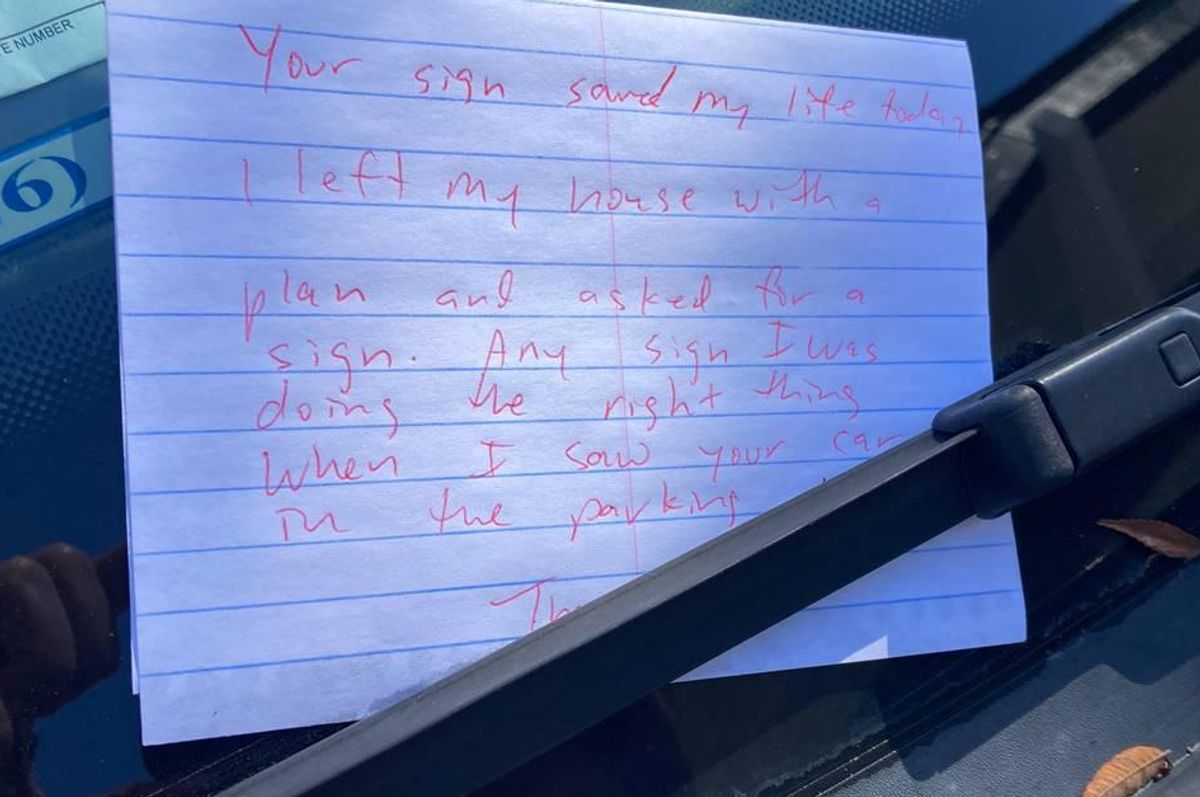 E NUMBER
6)
Your sign saved my life today
I left my house with a
plan and asked for a
sign. Any sign I was
doing the right thing
When I saw your car
in the parking
Th